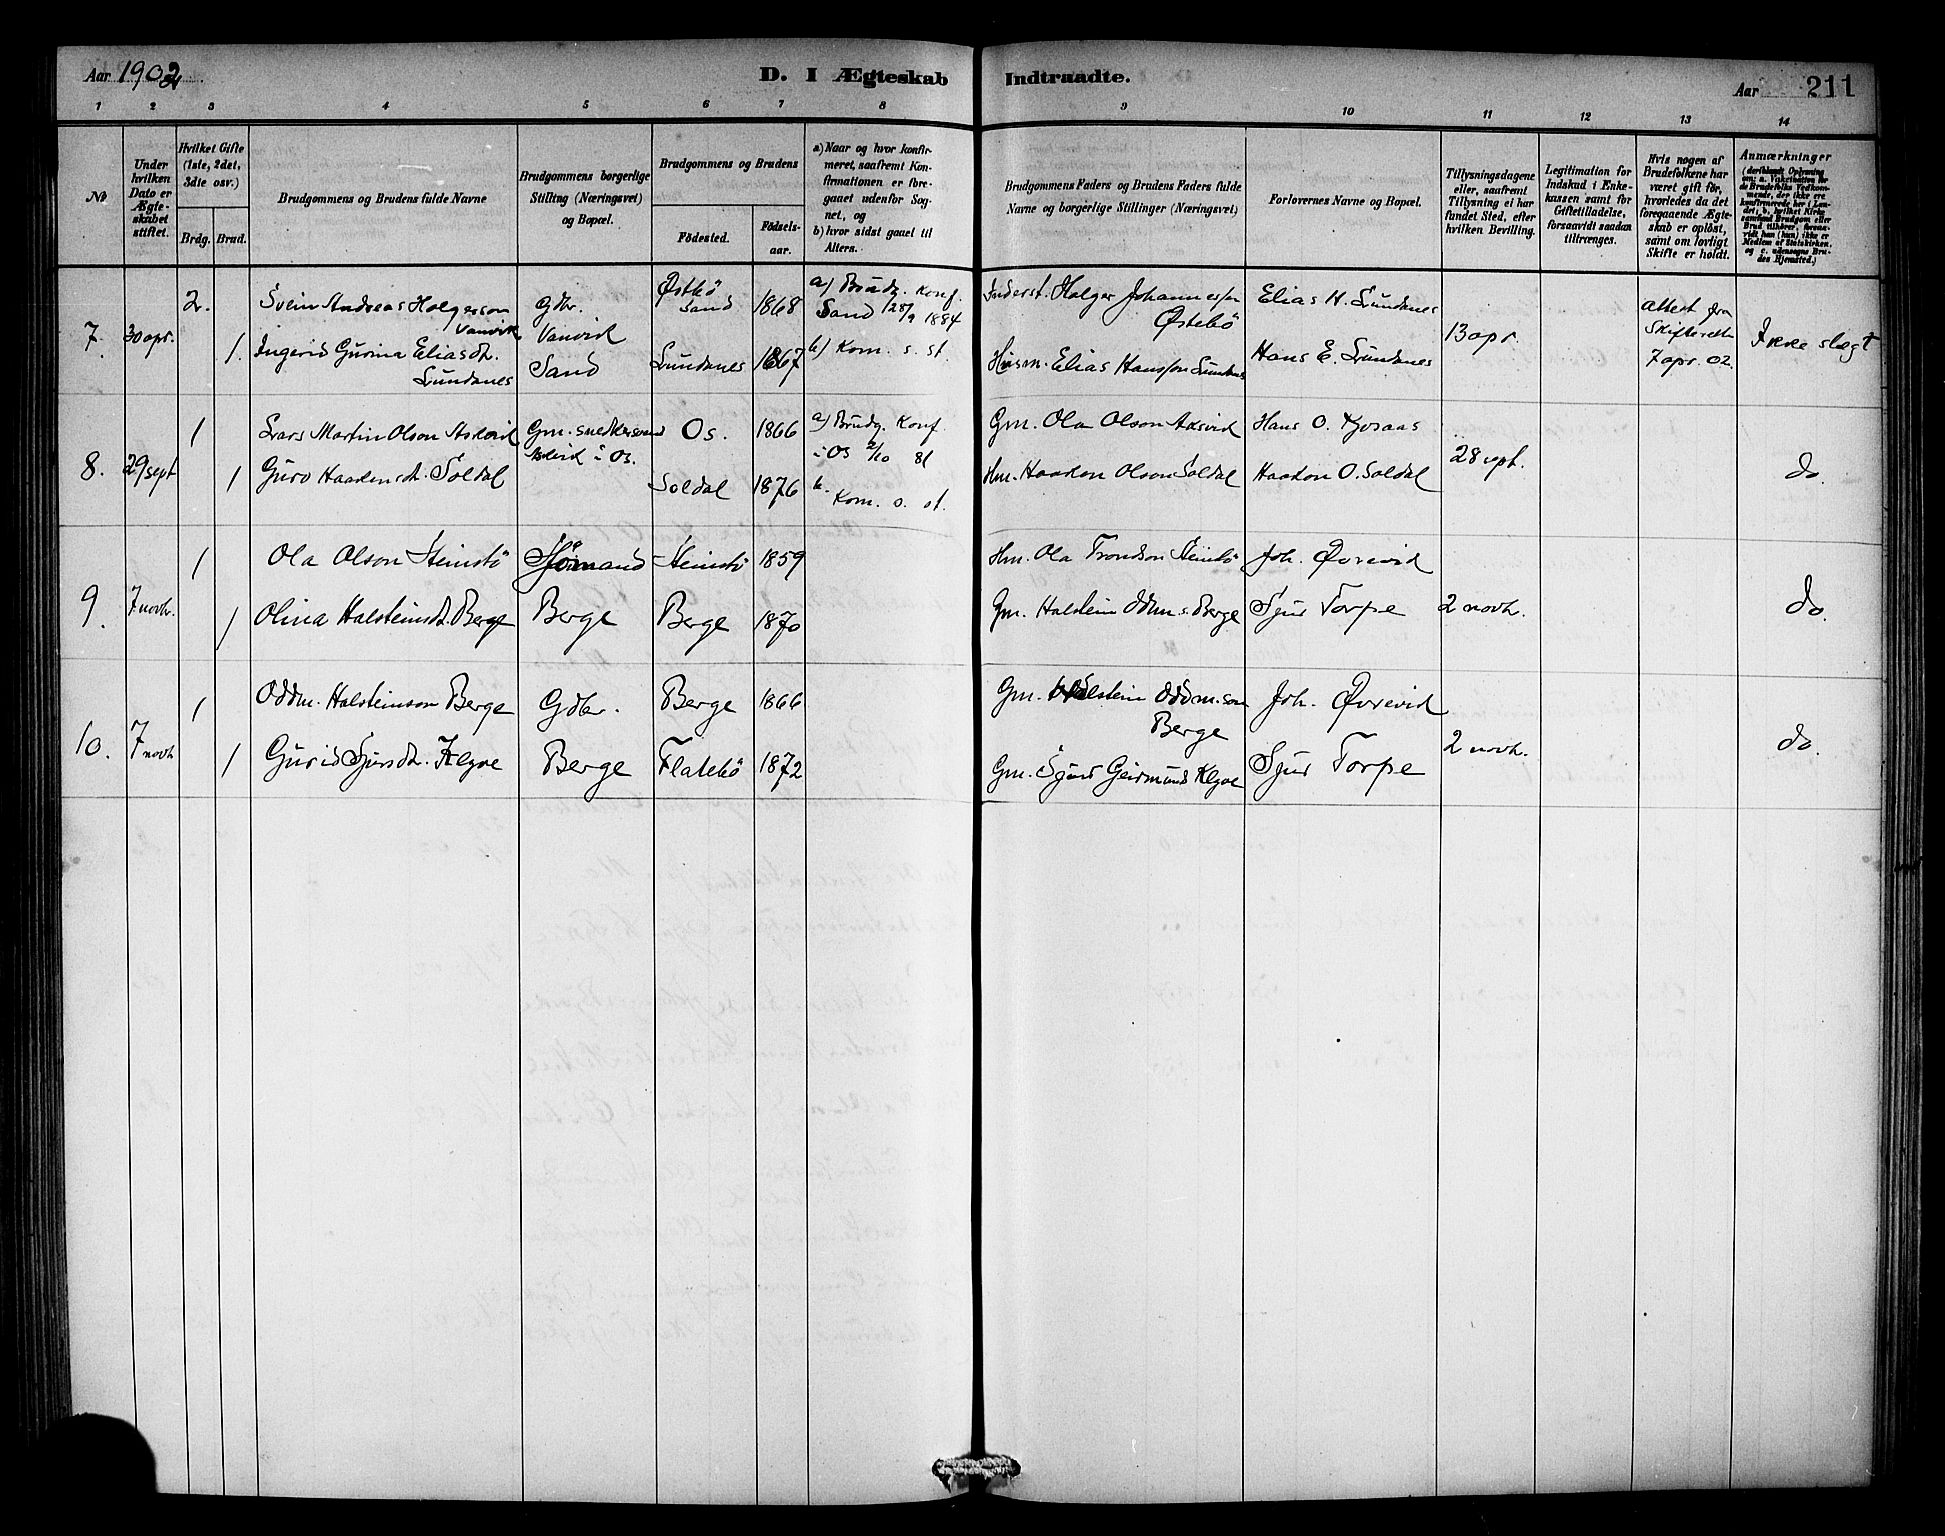 Aar 1902
D. I Ægteskab Indtraadte.
Aar 211
1 2 3 4 5 6 7 8 9 10 11 12 13 14
№
Under hvilken Dato er Ægteskabet stiftet.
Hvilket Gifte (1ste, 2det, 3die osv.)
Brdg. Brud.
Brudgommens og Brudens fulde Navne
Brudgommens borgerlige Stilling (Næringsvei) og Bopæl.
Brudgommens og Brudens
Fødested.
Fødselsaar.
a) Naar og hvor konfirmeret, saafremt Konfirmationen er foregaaet udenfor Sognet, og
b) hvor sidst gaaet til Alters.
Brudgommens Faders og Brudens Faders fulde Navne og borgerlige Stillinger (Næringsvei)
Forlovernes Navne og Bopæl.
Tillysningsdagene eller, saafremt Tillysning ei har fundet Sted, efter hvilken Bevilling.
Legitimation for Indskud i Enkekassen samt for Giftetilladelse, forsaavidt saadan tiltrænges.
Hvis nogen af Brudefolkene har været gift før, hvorledes da det foregaaende Ægteskab er opløst, samt om lovligt Skifte er holdt.
Anmærkninger
7. 30 apr. 2. Svein Andreas Holgerson Vanvik
Gdbr. Vanvik Sand
Østbö Sand 1868
a) Brudg. Konf. Sand 28/9 1884
Inderst. Holger Johannesson Østebö
Elias H. Lundanes
13 apr.
Attest fra Skifteretten 7 apr. 02.
Ikke slægt
1. Ingerid Gurina Eliasdt. Lundanes
Lundanes 1867
b) Kom. s. st.
Husm. Elias Hansson Lundanes
Hans E. Lundanes
8. 29 sept 1 Lars Martin Olson Askvik
Gm. i Os.
Os. 1866
a) Brudg. Konf. i Os 2/10 81
Gm. Ola Olson
Hans O.
28 sept.
do.
1 Guro Haakensdt. Soldal
Soldal 1876
b. Kom. s. st.
Hm. Haakon Olson Soldal
Haakon O. Soldal
9. 7 novbr. 1 Ola Olson Heimstö
Berge
Heimstö 1859
Hm. Ola Trondson Heimstö
Joh. Øvrevid
2 novbr.
do.
1 Olina Halsteinsdt. Berge
Berge 1870
Gm. Halstein Oddm.s. Berge
Sjur Torpe
10. 7 novbr 1 Oddm. Halsteinson Berge
Gdbr. Berge
Berge 1866
Gm. Halstein Oddm.son Berge
Joh. Øvrevid
2 novbr.
do.
1 Gurid Sjursdt. Klyve
Flatebö 1872
Gm. Sjur Geirmunds. Klyve
Sjur Torpe